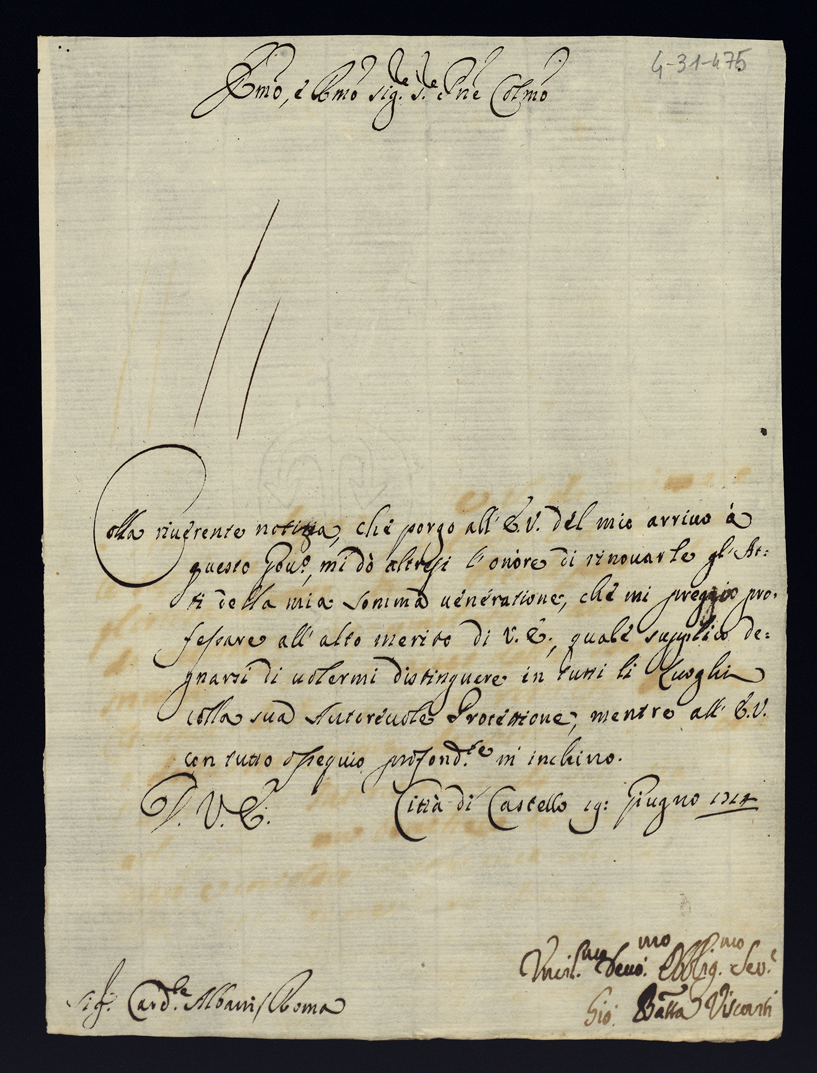 4-31-475
Emo, e Rmo Sig.re S.re e Pne Colmo
Colla riverente notizia, che porgo all' E.V. del mio arrivo à
questo Gov.o, mi dò altresi l' onore di rinovarle gl' At:
ti della mia somma veneratione, che mi preggio pro:
fessare all' alto merito di V.E., quale supplico de:
gnarsi di volermi distinguere in tutti li Luoghi
colla sua Autorevole Protettione, mentre all' E.V.
con tutto ossequio profond.te m' inchino.
D. V. E. Città di Castello 19: Giugno 1714
Umil.mo Devo.mo Obblig.mo Ser.e
Gio: Batta Visconti
Sig.r Card.le Albani / Roma